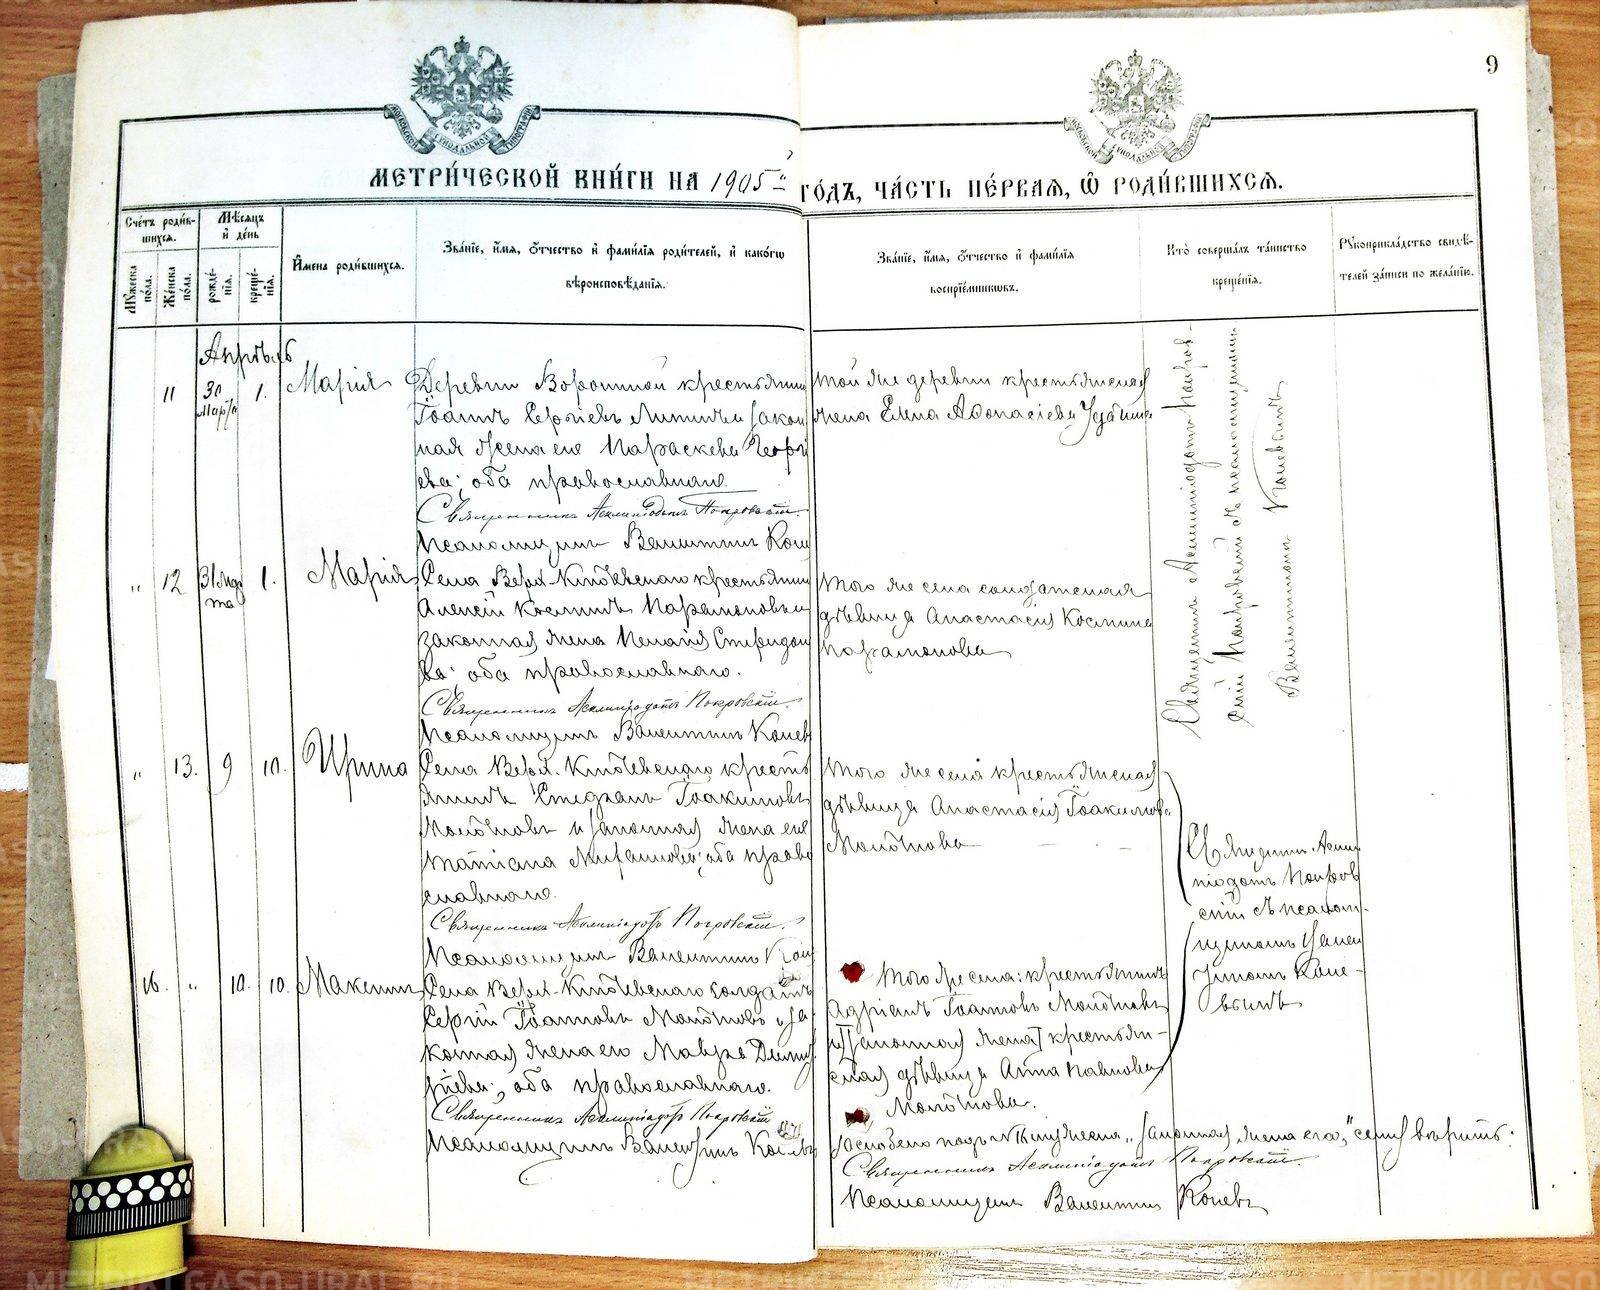 9
МЕТРИ́ЧЕСКОЙ КНИ́ГИ НА 1905й ГО́ДЪ, ЧА́СТЬ ПЕ́РВАЯ, Ѡ РОДИ́ВШИХСЯ.
Сче́тъ роди́в-
шихся.
Мѣсяцъ
и де́нь
Му́жеска по́ла.
Же́нска по́ла.
рожде́нїя.
креще́нїя.
Имена роди́вшихся.
Зва́нїе, и́мя, о́тчество и фами́лїя роди́телей, и како́гѡ
вѣроисповѣ́данїя.
Зва́нїе, и́мя, о́тчество и фами́лїя
воспрїе́мникѡвъ.
Кто̀ соверша́лъ та́инство
креще́нїя.
Рꙋкоприкла́дство свидѣ́-
телей за́писи по жела́нїю.
Апрѣль
11
30 Марта
1.
Марія
Деревни Ворошной крестьянинъ
Іоаннъ Сергіевъ и закон
ная жена его Параскева Георгі
ева; оба православнаго.
Священникъ Асклиподотъ Покровскій.
Псаломщикъ Валентинъ Коневъ
Той же деревни крестьянская
жена Елена Афонасіева
Священникъ Асклипіодотъ Покров-
скій Покровскій съ псаломщикомъ
Валентиномъ Коневымъ
"
12
31 Марта
1.
Марія
Села Верх-Ключевскаго крестьянинъ
Алексій Косминъ Парамоновъ и
законная жена Пелагія Спиридоно
ва; оба православнаго.
Священникъ Асклипіодотъ Покровскій.
Псаломщикъ Валентинъ Коневъ
Того же села солдатская
дѣвица Анастасія Космина
Парамонова
"
13.
9
10.
Ирина
Села Верх-Ключевскаго кресть
янинъ Стефанъ Іоакимовъ
и законная жена его
Татіана оба право
славнаго.
Священникъ Асклипіодотъ Покровскій.
Псаломщикъ Валентинъ Коневъ
Того же села крестьянская
дѣвица Анастасія Іоакимова
Священникъ Аскли
піодотъ Покров
скій съ псалом-
щикомъ Вален
тиномъ Коне-
вымъ
16.
"
10.
10.
Максимъ
Села Верх-Ключевскаго солдатъ
Сергій Іоанновъ и за-
конная жена его Мавра Димит
ріева; оба православнаго.
Священникъ Асклипіодотъ Покровскій
Псаломщикъ Валентинъ Коневъ
Того же села: крестьянинъ
Адріанъ Іоанновъ
и [законная жена] крестьян-
ская дѣвица Анна Павлова
"законная жена его," сему вѣрить:
Священникъ Асклипіодотъ Покровскій.
Псаломщикъ Валентинъ Коневъ
METRIKI.GASO-URAL.RU